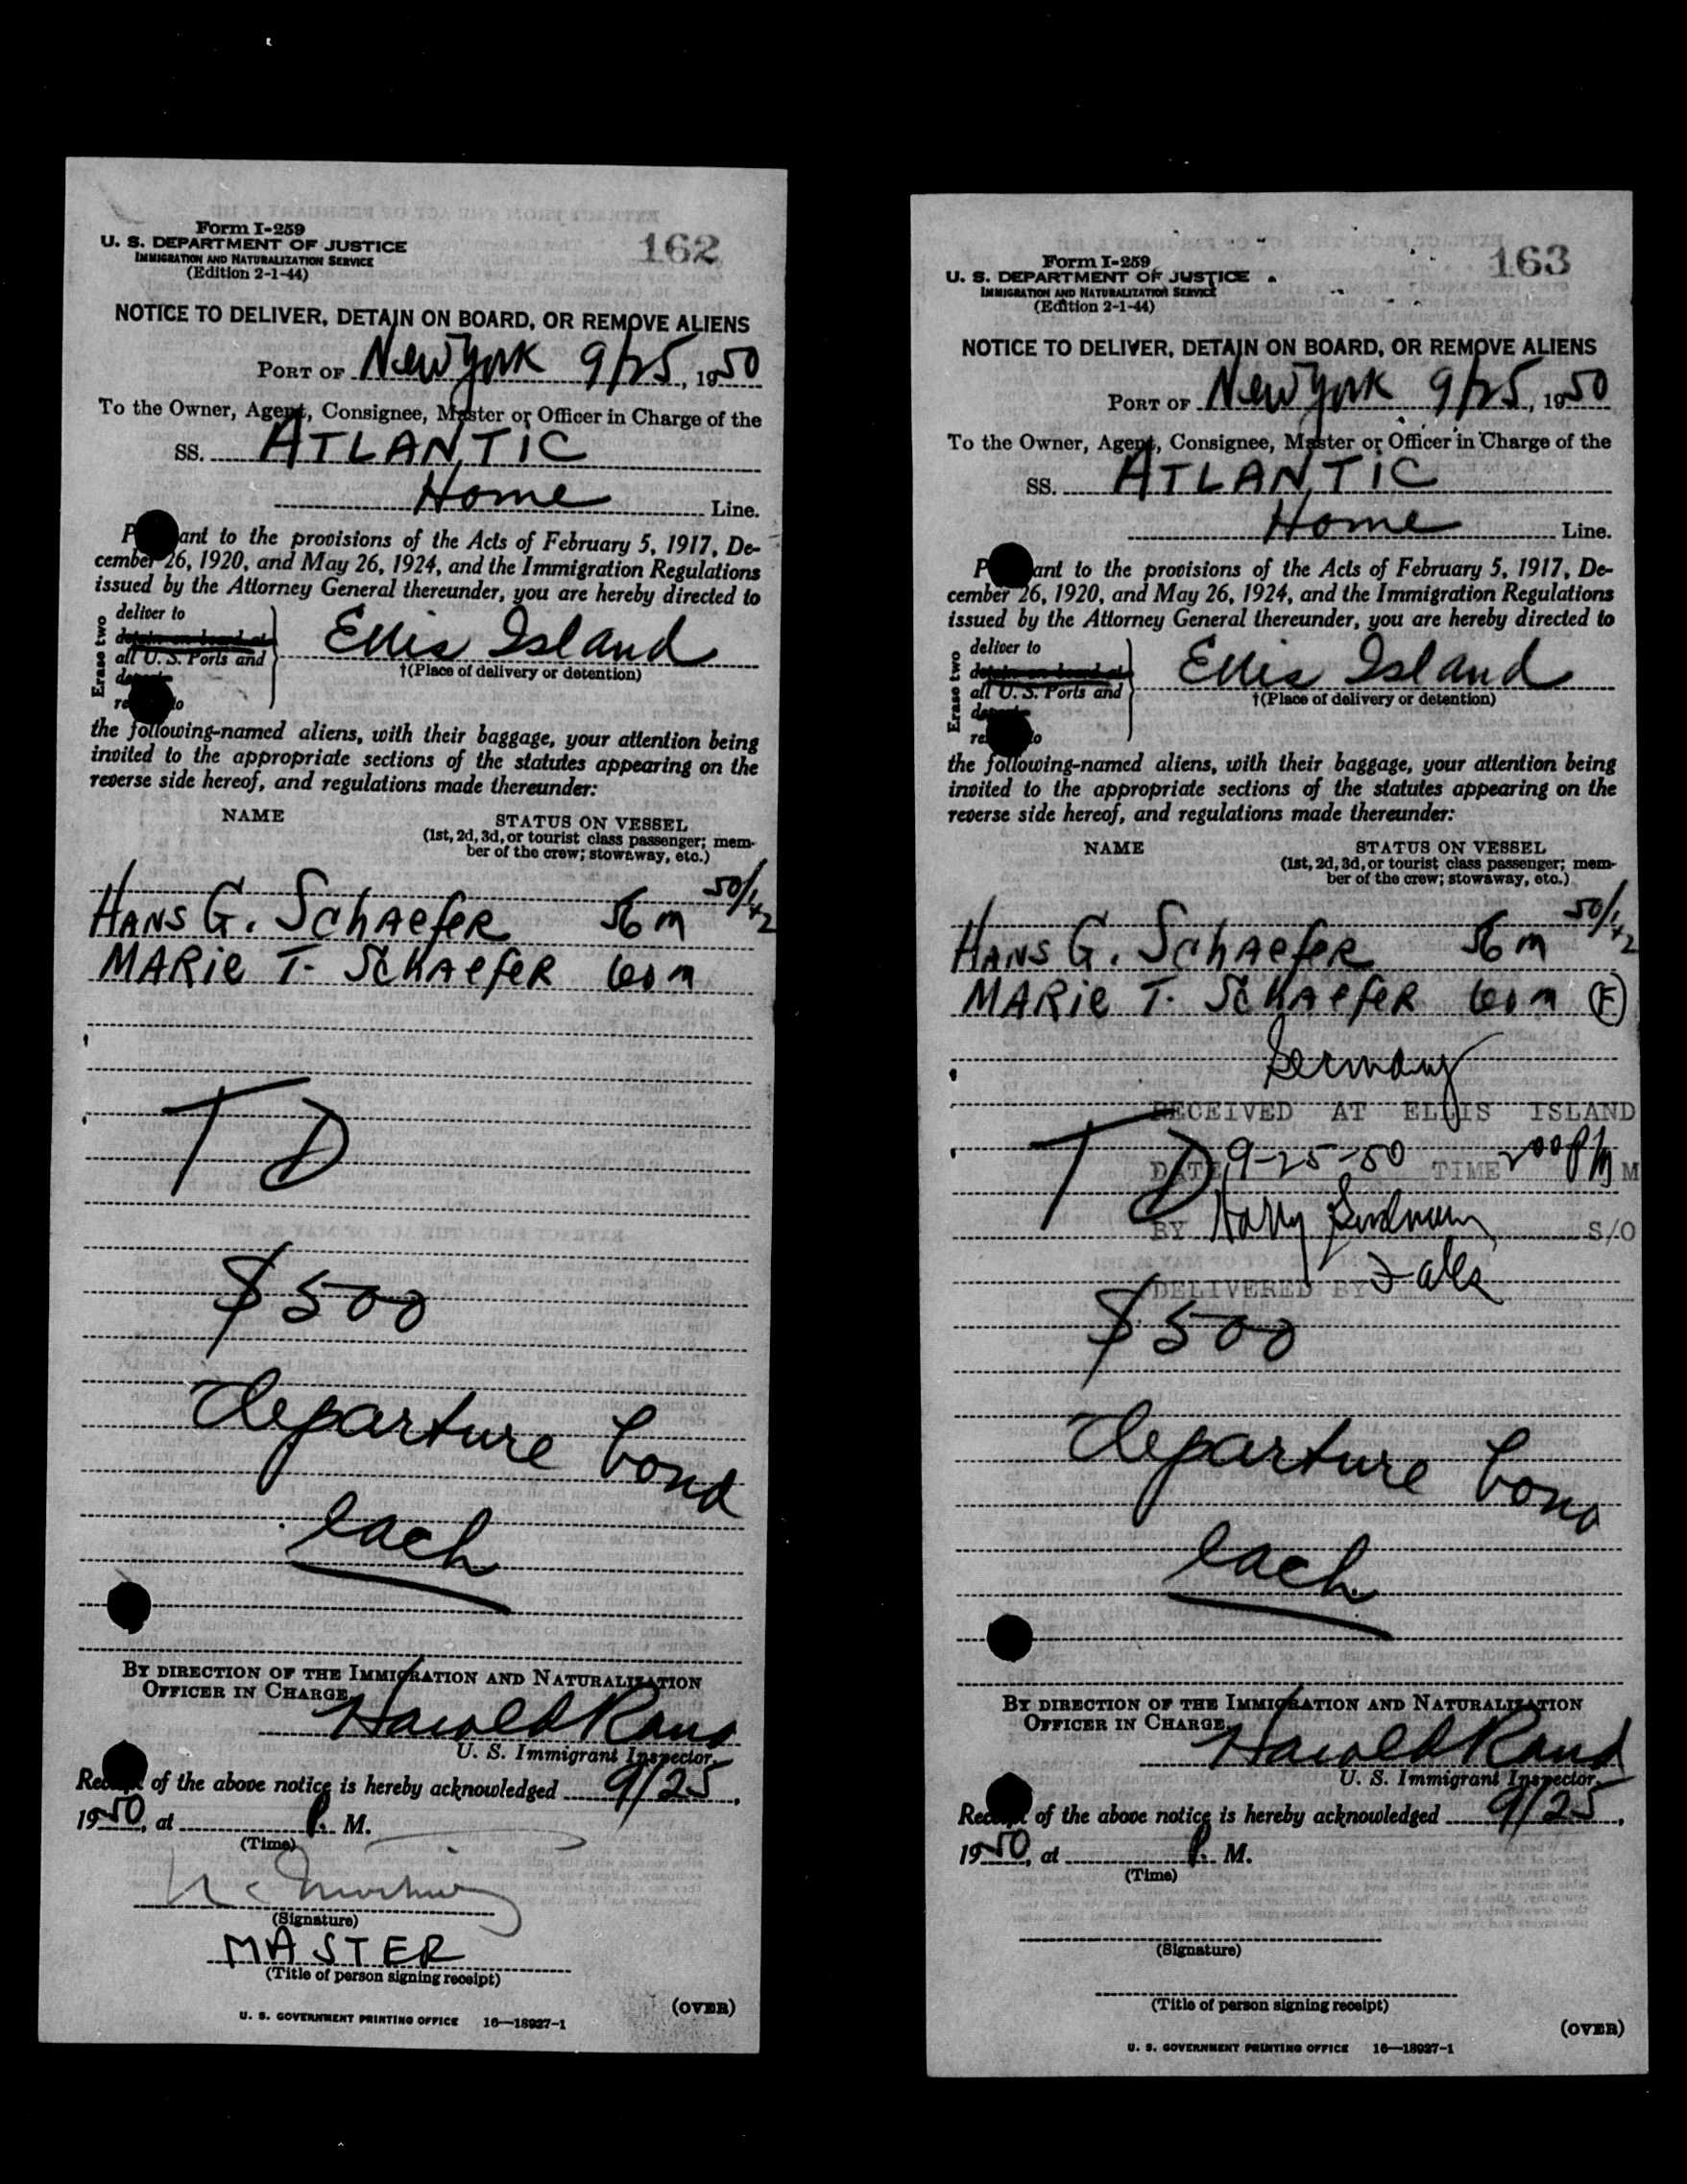 Form I-259
U. S. DEPARTMENT OF JUSTICE
IMMIGRATION AND NATURALIZATION SERVICE
(Edition 2-1-44)
162
NOTICE TO DELIVER, DETAIN ON BOARD, OR REMOVE ALIENS
PORT OF New York 9/25, 1950
To the Owner, Agent, Consignee, Master or Officer in Charge of the
SS. ATLANTIC
Home Line.
P ant to the provisions of the Acts of February 5, 1917, De-
cember 26, 1920, and May 26, 1924, and the Immigration Regulations
issued by the Attorney General thereunder, you are hereby directed to
Erase two
deliver to
detain on board at
all U. S. Ports and
Ellis Island
†(Place of delivery or detention)
the following-named aliens, with their baggage, your attention being
invited to the appropriate sections of the statutes appearing on the
reverse side hereof, and regulations made thereunder:
NAME
STATUS ON VESSEL
(1st, 2d, 3d, or tourist class passenger; mem-
ber of the crew; stowaway, etc.)
HANS G. SchAefeR 56 m 50/42
MARie T. SchAefeR 60 m
T D
$500
departure bond
each
BY DIRECTION OF THE IMMIGRATION AND NATURALIZATION
OFFICER IN CHARGE
Harold Rand
U. S. Immigrant Inspector.
Rec t of the above notice is hereby acknowledged 9/25,
1950, at P. M.
(Time)
(Signature)
MASTER
(Title of person signing receipt)
(OVER)
U. S. GOVERNMENT PRINTING OFFICE 16—18927-1
Form I-259
U. S. DEPARTMENT OF JUSTICE
IMMIGRATION AND NATURALIZATION SERVICE
(Edition 2-1-44)
163
NOTICE TO DELIVER, DETAIN ON BOARD, OR REMOVE ALIENS
PORT OF New York 9/25, 1950
To the Owner, Agent, Consignee, Master or Officer in Charge of the
SS. ATLANTIC
Home Line.
P ant to the provisions of the Acts of February 5, 1917, De-
cember 26, 1920, and May 26, 1924, and the Immigration Regulations
issued by the Attorney General thereunder, you are hereby directed to
Erase two
deliver to
detain on board at
all U. S. Ports and
Ellis Island
†(Place of delivery or detention)
the following-named aliens, with their baggage, your attention being
invited to the appropriate sections of the statutes appearing on the
reverse side hereof, and regulations made thereunder:
NAME
STATUS ON VESSEL
(1st, 2d, 3d, or tourist class passenger; mem-
ber of the crew; stowaway, etc.)
HANS G. SchAefeR 56 m 50/42
MARie T. SchAefeR 60 m (F)
Germany
RECEIVED AT ELLIS ISLAND
T D
DATE 9-25-50 TIME 200 PM M
BY Harry S/O
DELIVERED BY
$500
departure bond
each
BY DIRECTION OF THE IMMIGRATION AND NATURALIZATION
OFFICER IN CHARGE
Harold Rand
U. S. Immigrant Inspector.
Rec t of the above notice is hereby acknowledged 9/25,
1950, at P. M.
(Time)
(Signature)
(Title of person signing receipt)
(OVER)
U. S. GOVERNMENT PRINTING OFFICE 16—18927-1